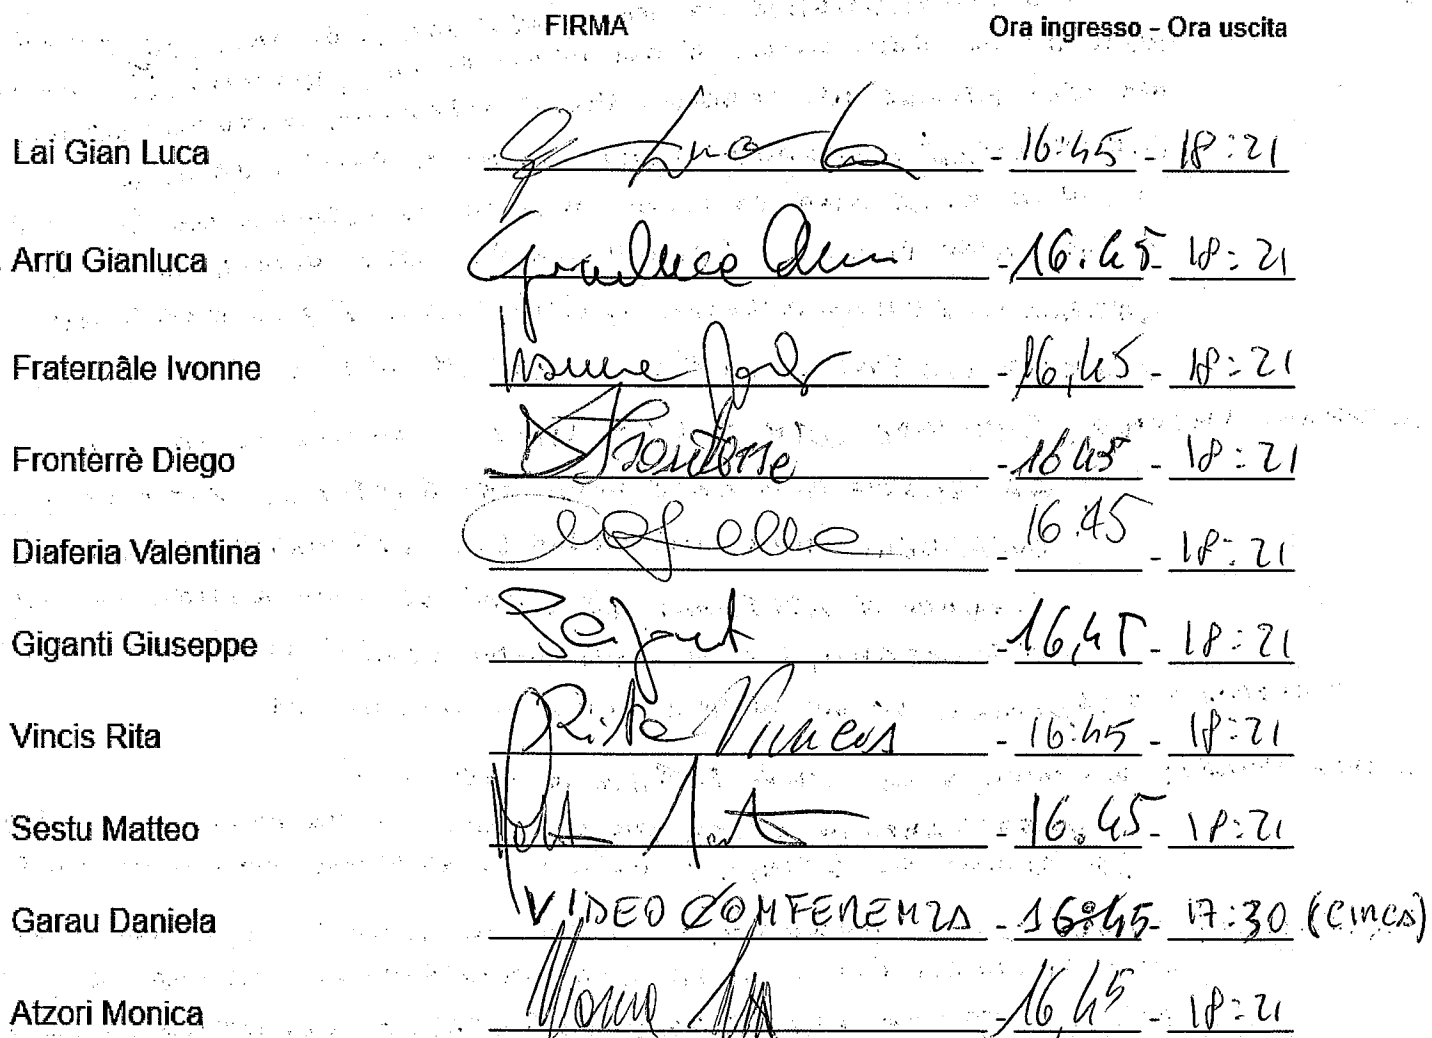 FIRMA Ora ingresso - Ora uscita
Lai Gian Luca Gian Luca Lai - 16:45 - 18:21
Arru Gianluca Gianluca Arru - 16.45 - 18:21
Fraternâle Ivonne Ivonne - 16,45 - 18:21
Fronterrè Diego D Fronterre - 16 45 - 18:21
Diaferia Valentina - 16.45 - 18:21
Giganti Giuseppe - 16,45 - 18:21
Vincis Rita Rita Vincis - 16:45 - 18:21
Sestu Matteo - 16.45 - 18:21
Garau Daniela VIDEO CONFERENZA - 16:45 - 17:30 (CIRCA)
Atzori Monica Monica - 16,45 - 18:21